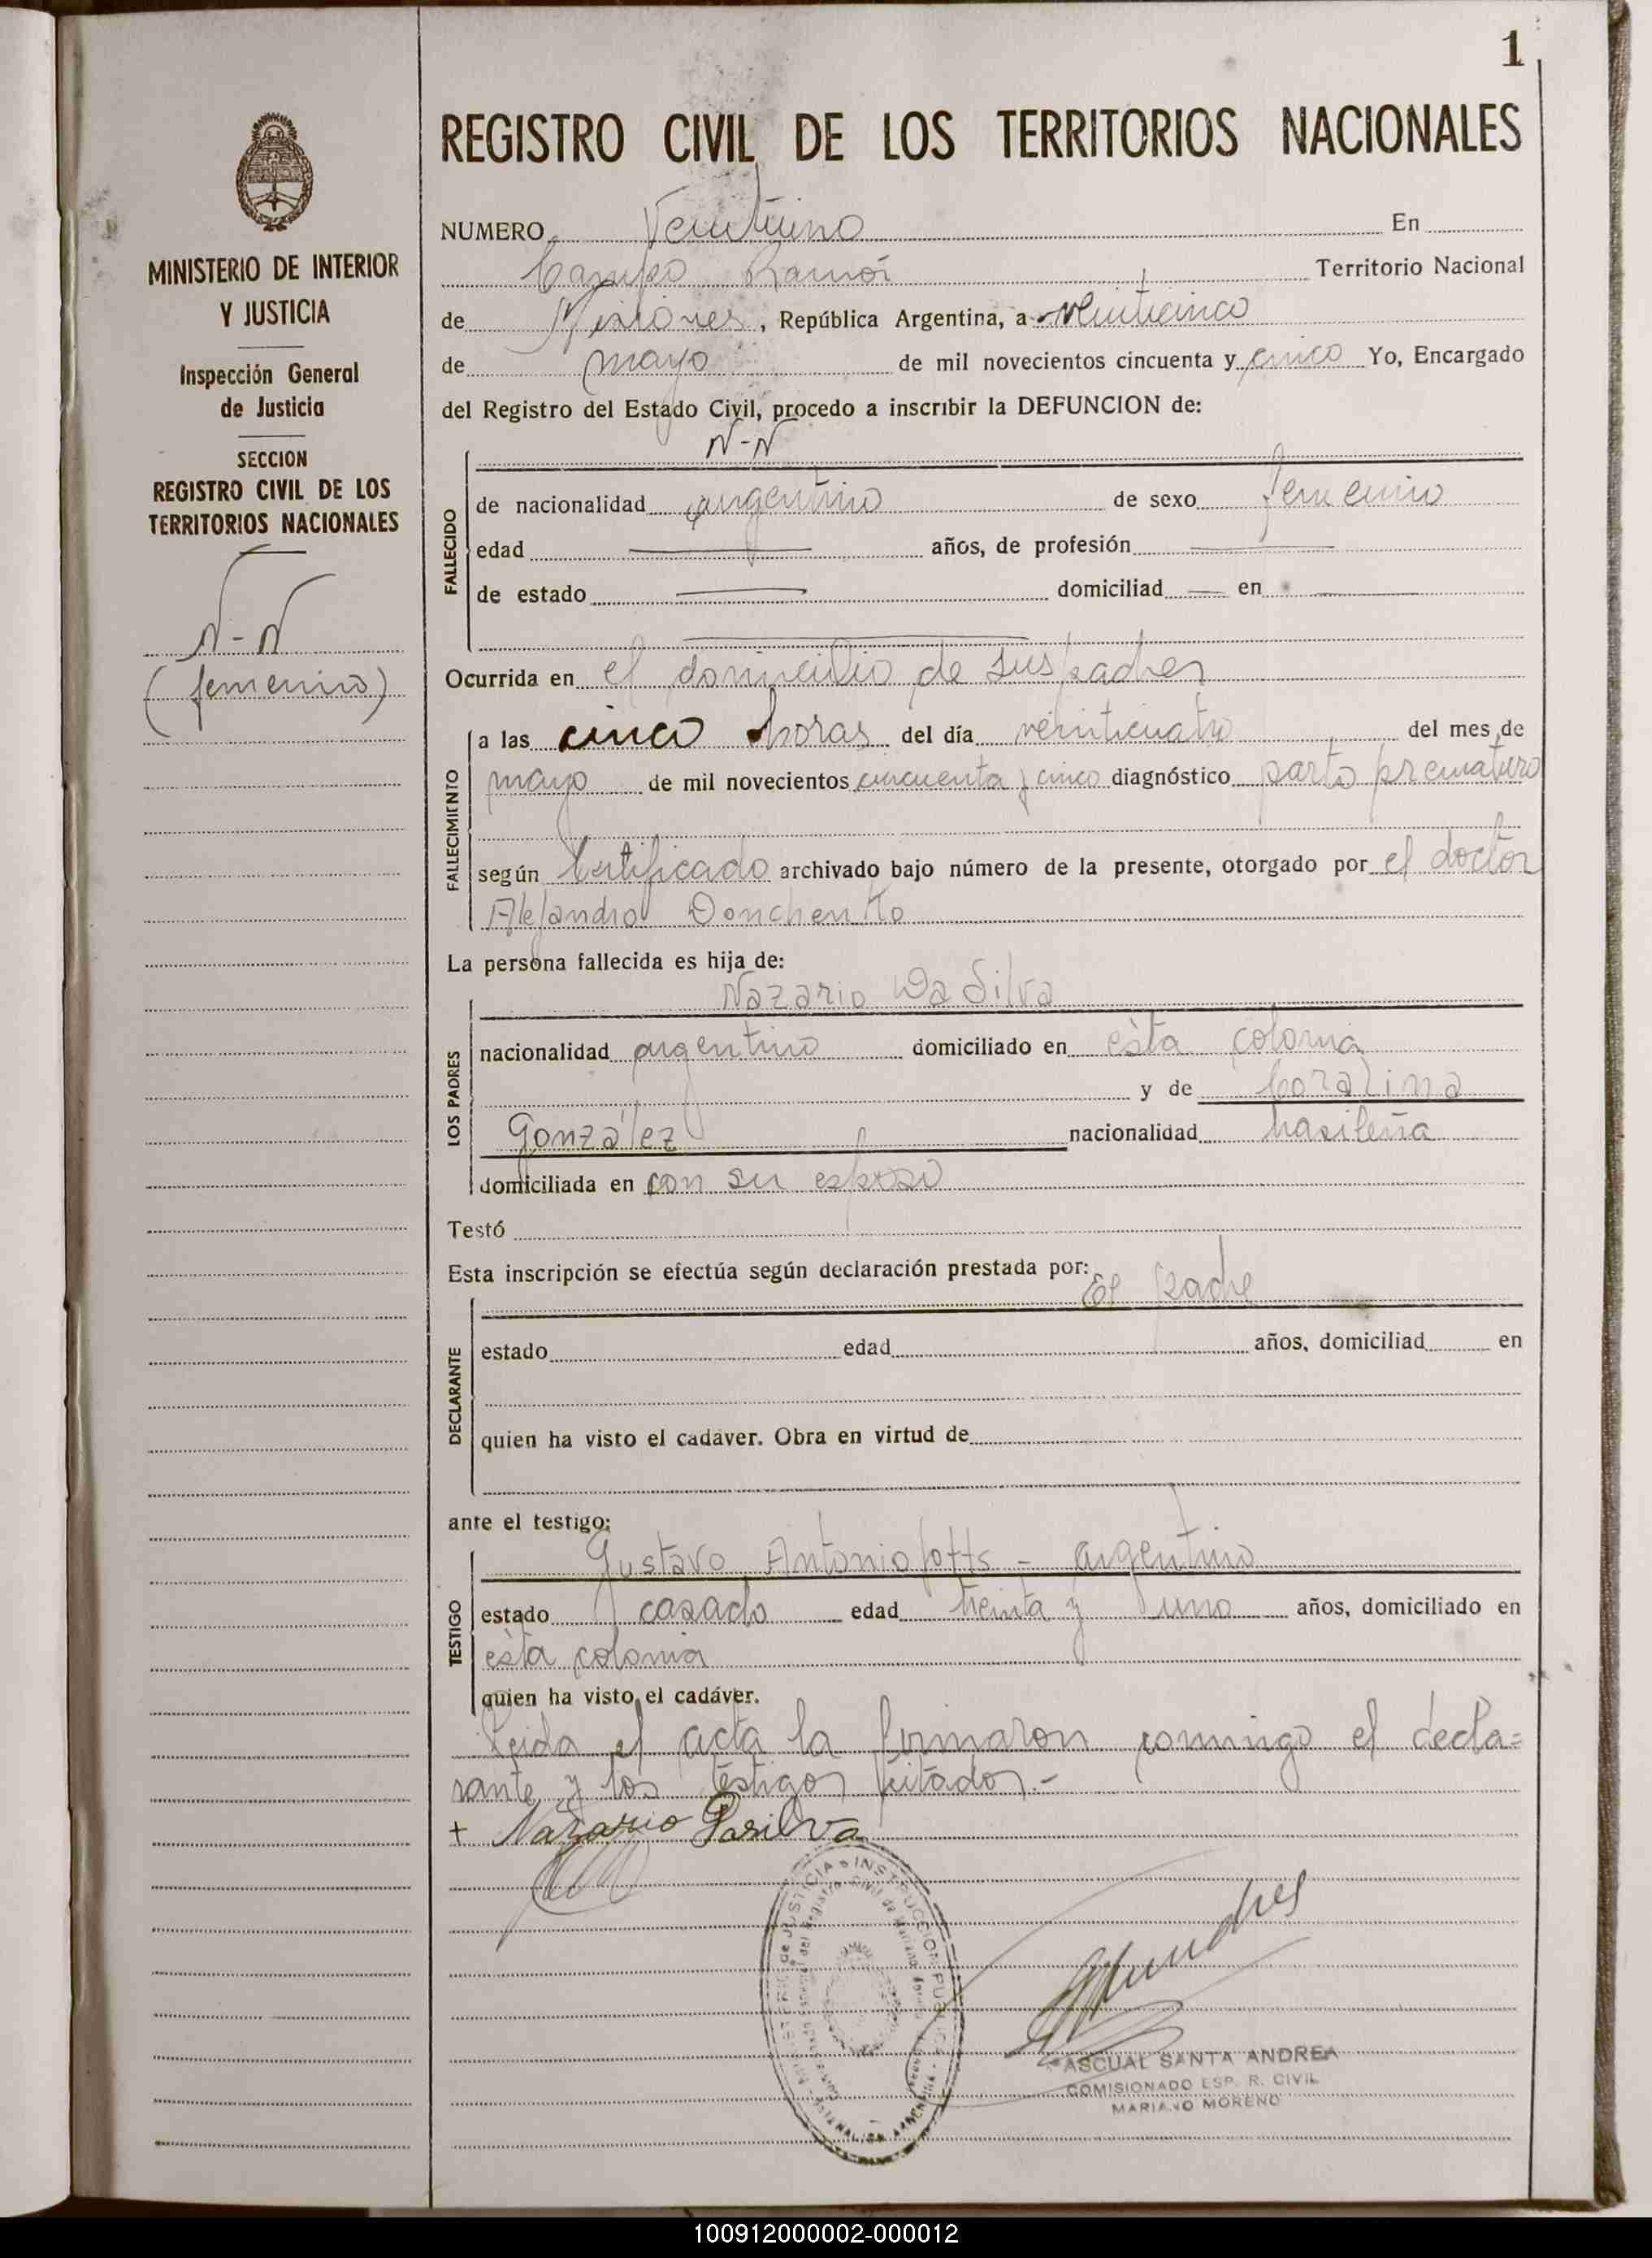 1
REGISTRO CIVIL DE LOS TERRITORIOS NACIONALES
MINISTERIO DE INTERIOR
Y JUSTICIA
Inspección General
de Justicia
SECCION
REGISTRO CIVIL DE LOS
TERRITORIOS NACIONALES
N-N
(femenino)
NUMERO Veintiuno En
Campo Ramón Territorio Nacional
de Misiones, República Argentina, a veinticinco
de mayo de mil novecientos cincuenta y cinco Yo, Encargado
del Registro del Estado Civil, procedo a inscribir la DEFUNCION de:
N-N
FALLECIDO
de nacionalidad argentino de sexo femenino
edad años, de profesión
de estado domiciliad en
Ocurrida en el domicilio de sus padres
FALLECIMIENTO
a las cinco horas del día veinticuatro del mes de
mayo de mil novecientos cincuenta y cinco diagnóstico parto prematuro
según Certificado archivado bajo número de la presente, otorgado por el doctor
Alejandro Donchenko
La persona fallecida es hija de:
Nazario Da Silva
LOS PADRES
nacionalidad argentino domiciliado en ésta colonia
y de Coralina
González nacionalidad brasileña
domiciliada en con su esposo
Testó
Esta inscripción se efectúa según declaración prestada por:
El padre
DECLARANTE
estado edad años, domiciliad en
quien ha visto el cadáver. Obra en virtud de
ante el testigo:
Gustavo Antonio - argentino
TESTIGO
estado casado edad treinta y uno años, domiciliado en
ésta colonia
quien ha visto el cadáver.
Leida el acta la firmaron conmigo el decla=
rante y los testigos citados.-
+ Nazario Dasilva
PASCUAL SANTA ANDREA
COMISIONADO ESP. R. CIVIL
MARIANO MORENO
100912000002-000012